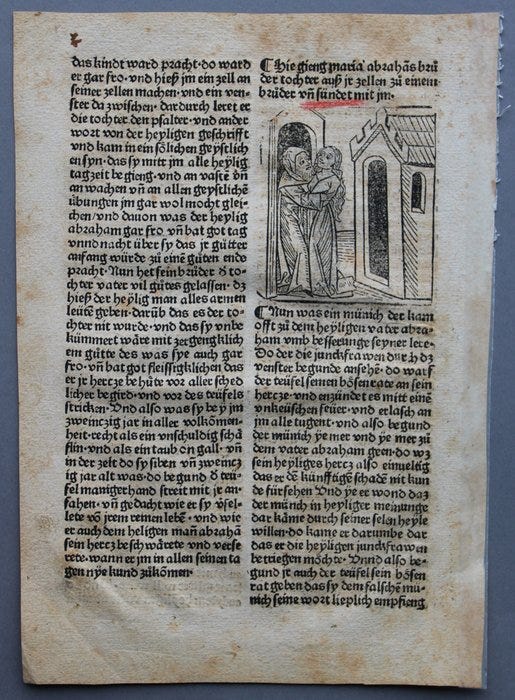 das kindt ward pracht· do ward
er gar fro· vnd hieß jm ein zell an
seiner zellen machen· vnd ein ven-
ster da zwischen· dardurch leret er
die tochter den psalter· vnd ander
wort von der heyligen geschrifft
vnd kam in ein sölichen geystlich
en syn· das sy mitt jm alle heylig
tagzeit begieng· vnd an vastē vñ
an wachen vñ an allen geystlichē
übungen jm gar wol mocht glei-
chen/ vnd dauon was der heylig
abraham gar fro· vñ bat got tag
vnnd nacht über sy das jr gůtter
anfang würde zů eine gůten endo
pracht· Nun het sein brůder d to-
chter vater vil gůtes gelassen· dz
hieß der heylig man alles armen
leüten geben· darüb das es der to-
chter nit wurde· vnd das sy vnbe
kümmert wäre mit zergengklich
em gůtte des was sye auch gar
fro· vñ bat got fleissigklichen das
er jr hercze behůte vor aller sched
licher begird· vnd vor des teüfels
stricken· Vnd also was sy bey jm
zweinczig jar in aller volkōmen-
heit· recht als ein vnschuldig schä
flin· vnd als ein taub on gall· vñ
in der zeit do sy siben vñ zweincz
ig jar alt was· do begund d teü-
fel maniger hand streit mit jr an-
fahen· vñ gedacht wie er sy vsel-
lete vō jrem reinen lebē· vnd wie
er auch dem heligen man abrahā
sein hercz beschwärete vnd verse
rete· wann er jm in allen seinen ta
gen nye kund zůkōmen·
Hie gieng maria abrahās brů
der tochter auß jr zellen zů einem
brůder vñ sündet mit jm·
Nun was ein münich der kam
offt zů dem heyligen vater abra-
ham vmb besserunge seyner lere·
Do der die junckfrawen durch dz
venster begunde ansehē· do warf
der teüfel seinen bösen rate an sein
hercze· vnd enzündet es mitt einē
vnkeüschen feüer· vnd erlasch an
jm alle tugent· vnd also begund
der münich ye mer vnd ye mer zů
dem vater abraham geen· do wz
sein heyliges hercz also einueltig
das er dē künfftigē schadē nit kun
de fürsehen Vnd ye er wond daz
der münich in heyliger meinunge
dar käme durch seiner selen heyle
willen· do kame er darumbe dar
das er die heyligen junckfrawen
betriegen möchte· Vnnd also be-
gund jr auch der teüfel sein bösen
rat geben das sy dem falschē mü-
nich seine wort lieplich empfieng